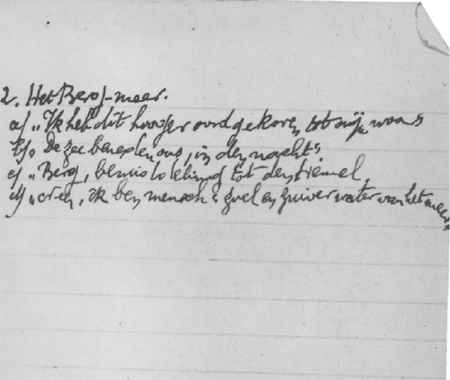 2. Het Berg-meer.
a) „Ik heb dit hooger oord gekoren tot mijn woon"
b) „De zee beneden ons, in den nacht"
c) „Berg, tot den hemel,
d) „en, ik ben mensch" zoel en zuiver water van het meer"